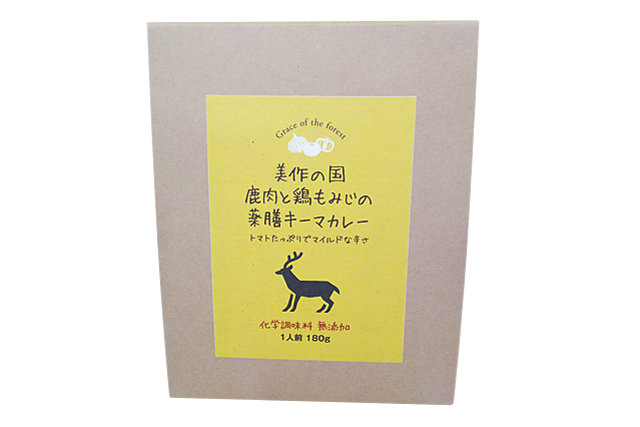 Grace of the forest
美作の国
鹿肉と鶏もみじの
薬膳キーマカレー
トマトたっぷりでマイルドな辛さ
化学調味料 無添加
1人前 180g